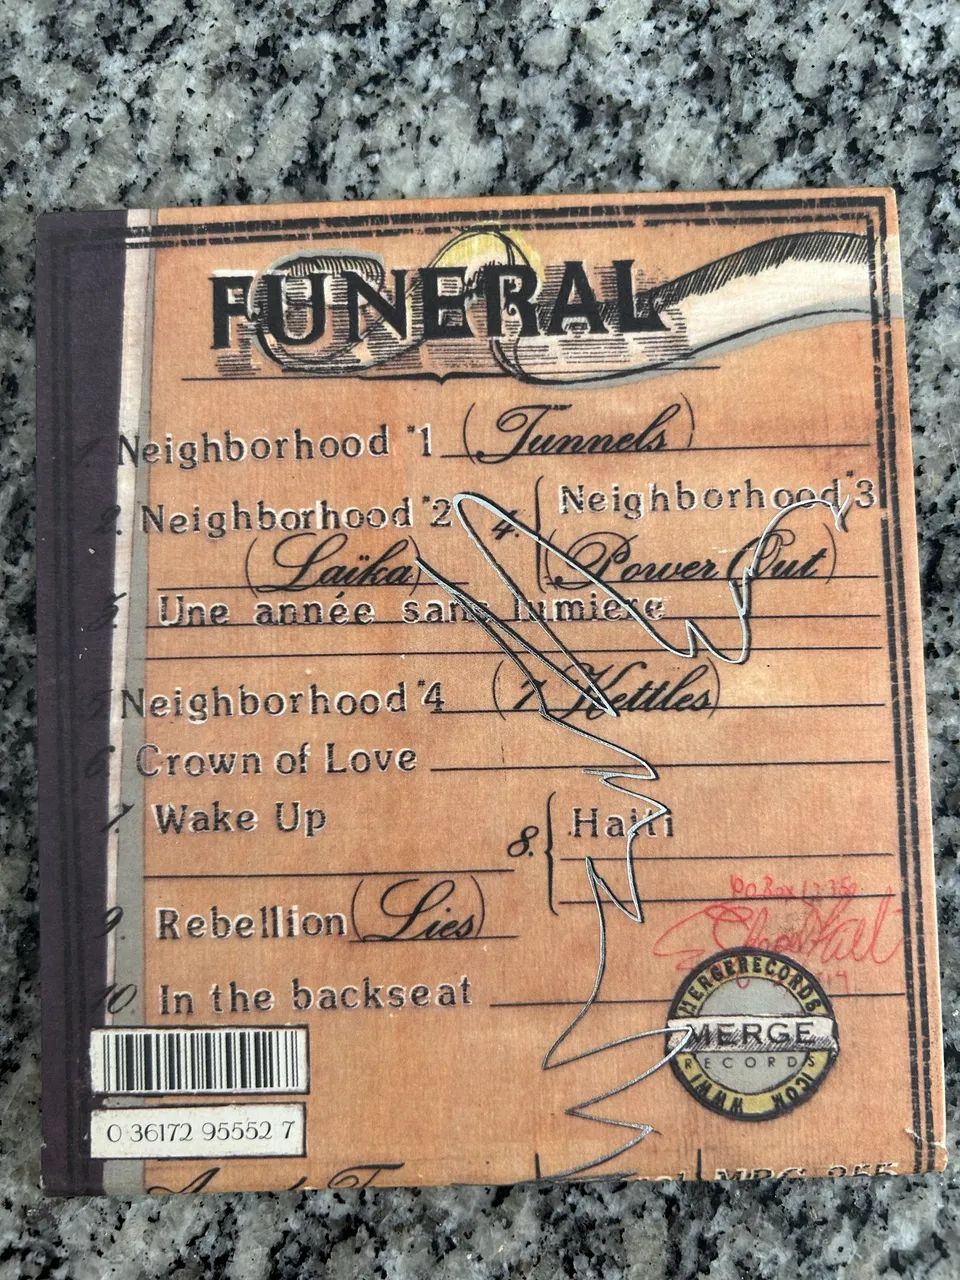 FUNERAL
1. Neighborhood #1 (Tunnels)
2. Neighborhood #2
(Laïka)
3. Une année sans lumiere
4. Neighborhood #3
(Power Out)
5. Neighborhood #4 (7 Kettles)
6. Crown of Love
7. Wake Up
8. Haiti
9. Rebellion (Lies)
10. In the backseat
PO Box 1235
Chapel Hill
MERGERECORDS
MERGE
RECORDS
0 36172 95552 7
MRG 255